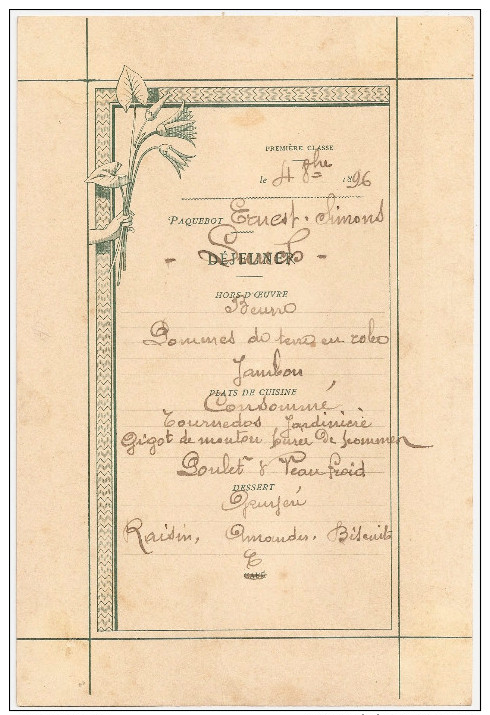 PREMIÈRE CLASSE
le 4 8bre 1896
PAQUEBOT Ernest. Simons
- Lunch -
DÉJEUNER
HORS-D'ŒUVRE
Beurre
Pommes de terre en robe
Jambon
PLATS DE CUISINE
Consommé
Tournedos Jardinière
Gigot de mouton Purée De pommes
Poulet & Veau froid
DESSERT
Raisin, Amandes. Biscuits
CAFÉ